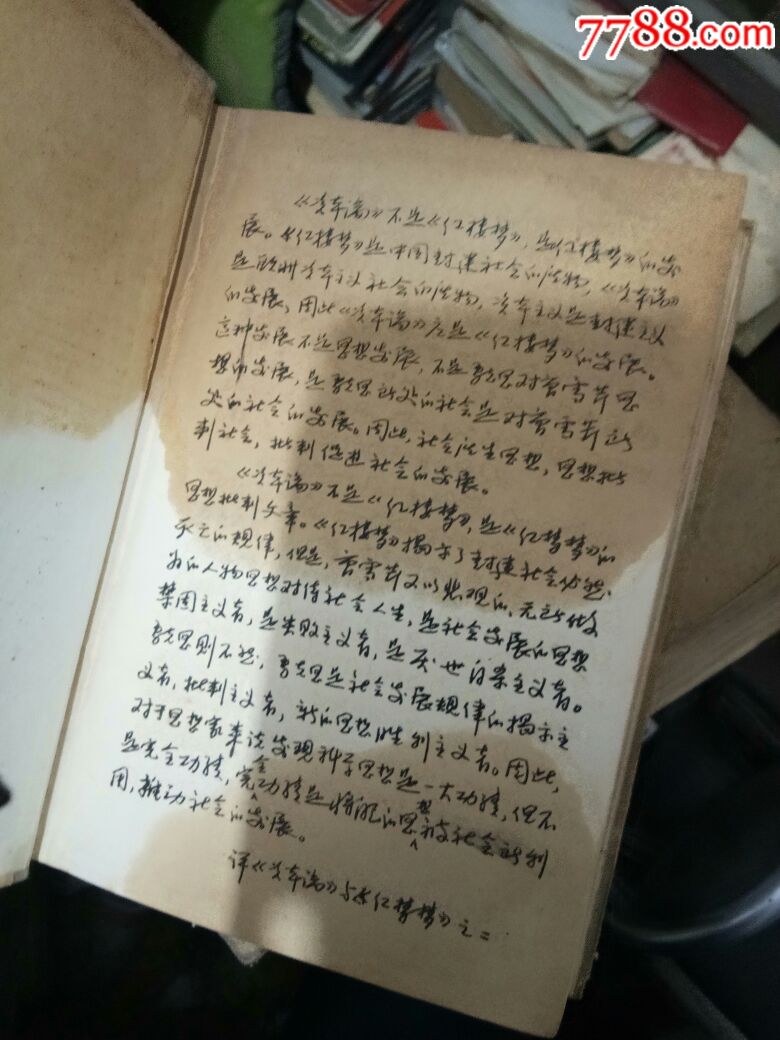 7788.com
《资本论》不是《红楼梦》,是《红楼梦》的发
展。《红楼梦》是中国封建社会的活物,《资本论》
是欧洲资本主义社会的活物,资本主义是封建主义
的发展,因此《资本论》应是《红楼梦》的发展。
这种发展不是思想发展,不是马克思对曹雪芹思
想的发展,是马克思所处的社会是对曹雪芹所
处的社会的发展。因此,社会派生思想,思想批
判社会,批判促进社会的发展。
《资本论》不是《红楼梦》,是《红楼梦》的
思想批判文章。《红楼梦》揭示了封建社会必然
灭亡的规律,但是,曹雪芹又以悲观的,无所做
为的人物思想对待社会人生,是社会发展的思想
禁固主义者,是失败主义者,是厌世自杀主义者。
马克思则不然,马克思是社会发展规律的揭示主
义者,批判主义者,新的思想胜利主义者。因此,
对于思想家来说发现科学思想是一大功绩,但不
是完全功绩,完全功绩是将能的思想被社会所利
用,推动社会的发展。
评《资本论》与《红楼梦》之二